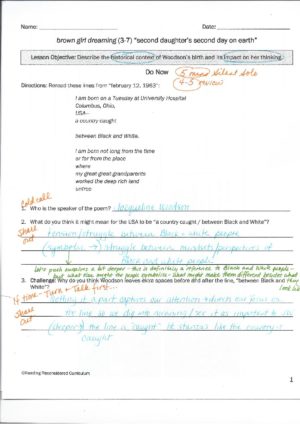 Name: Date:
brown girl dreaming (3-7) "second daughter's second day on earth"
Lesson Objective: Describe the historical context of Woodson's birth and its impact on her thinking.
Do Now
5 mins silent solo
4-5 review
Directions: Reread these lines from "february 12, 1963":
I am born on a Tuesday at University Hospital
Columbus, Ohio,
USA--
a country caught
between Black and White.
I am born not long from the time
or far from the place
where
my great great grandparents
worked the deep rich land
unfree
Cold call
1. Who is the speaker of the poem? Jacqueline Woodson
2. What do you think it might mean for the USA to be "a country caught / between Black and White"?
Share out
tension/struggle between Black + white people
(symbolic → struggle between mindsets/perspectives of
Black and white people
Let's push ourselves a bit deeper - this is definitely a reference to Black and white people -
but what else might the people symbolize - what might make them different besides what they look like
3. Challenge: Why do you think Woodson leaves extra spaces before and after the line, "between Black and White"?
If time - Turn + Talk first...
Share out
setting it apart captures our attention + directs our focus on
the line so we dig into meaning/see it as important to us
(deeper) the line is "caught" bw stanzas like the country is
caught
©Reading Reconsidered Curriculum
1